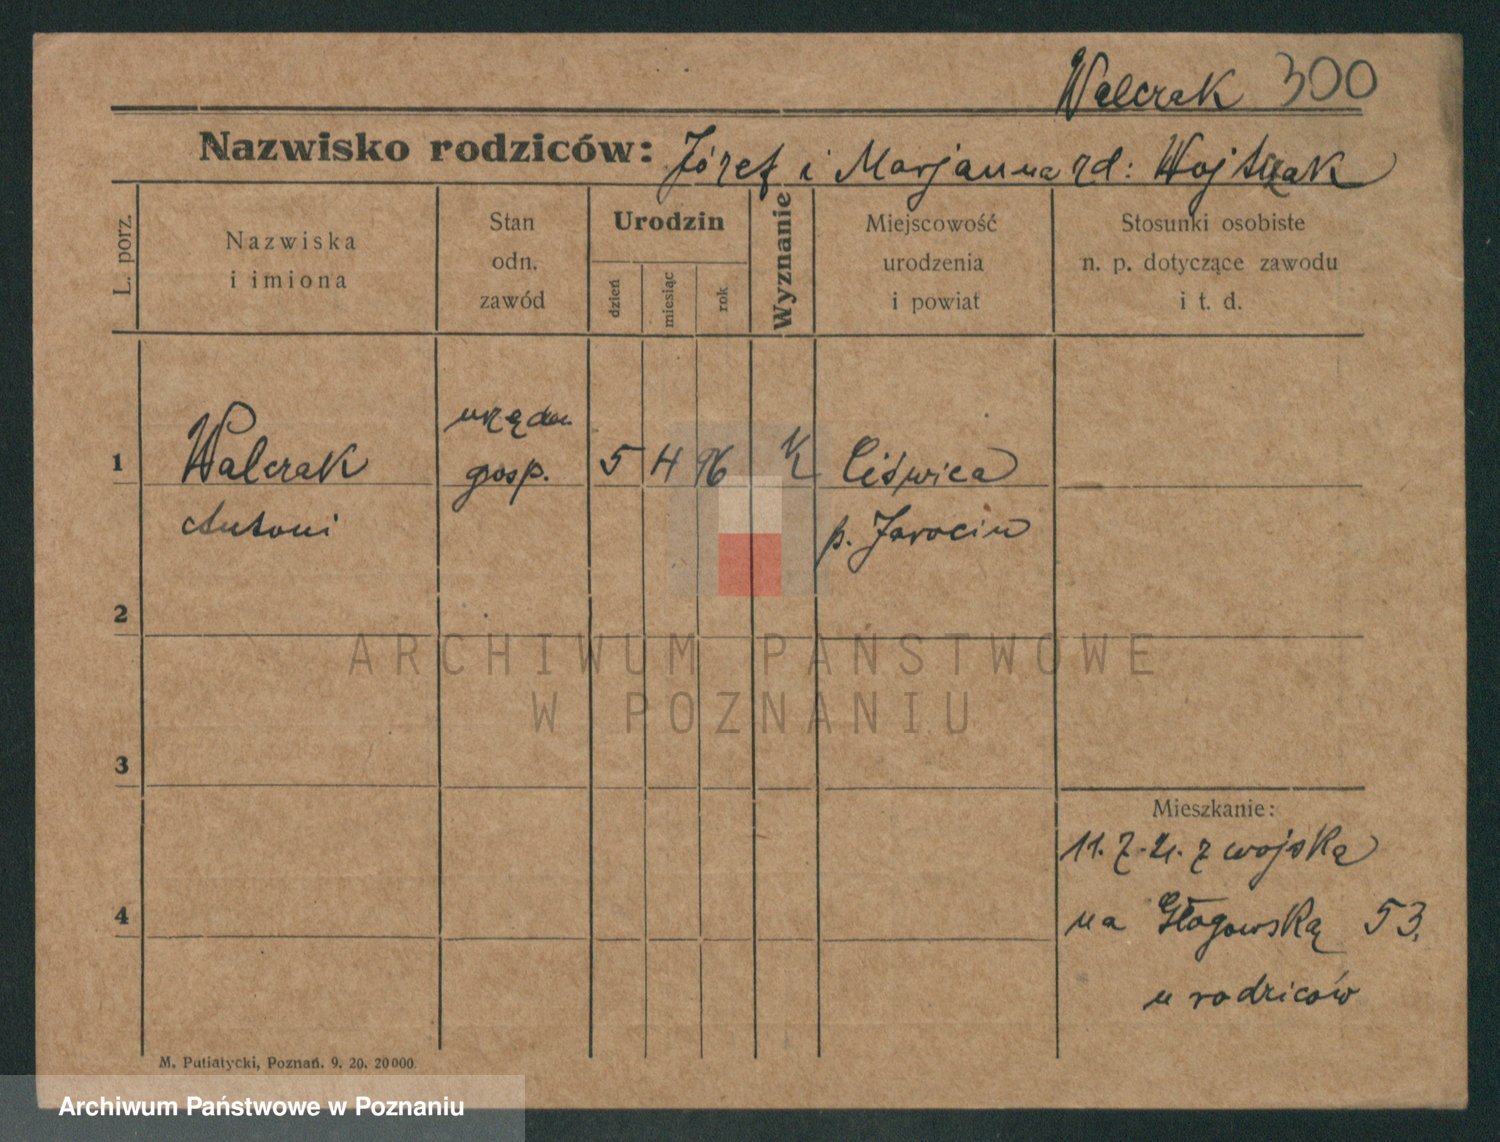 Walczak 300
Nazwisko rodziców: Józef i Marjanna rd: Wojtczak
L. porz.
Nazwiska
i imiona
Stan
odn.
zawód
Urodzin
dzień
miesiąc
rok
Wyznanie
Miejscowość
urodzenia
i powiat
Stosunki osobiste
n. p. dotyczące zawodu
i t. d.
1
Walczak
Antoni
urzędn.
gosp.
5 4 96
K
Ciświca
p. Jarocin
2
3
4
Mieszkanie:
11. 7. 21. z wojska
na Głogowską 53.
u rodziców
M. Putiatycki, Poznań. 9. 20. 20000.
ARCHIWUM PAŃSTWOWE
W POZNANIU
Archiwum Państwowe w Poznaniu